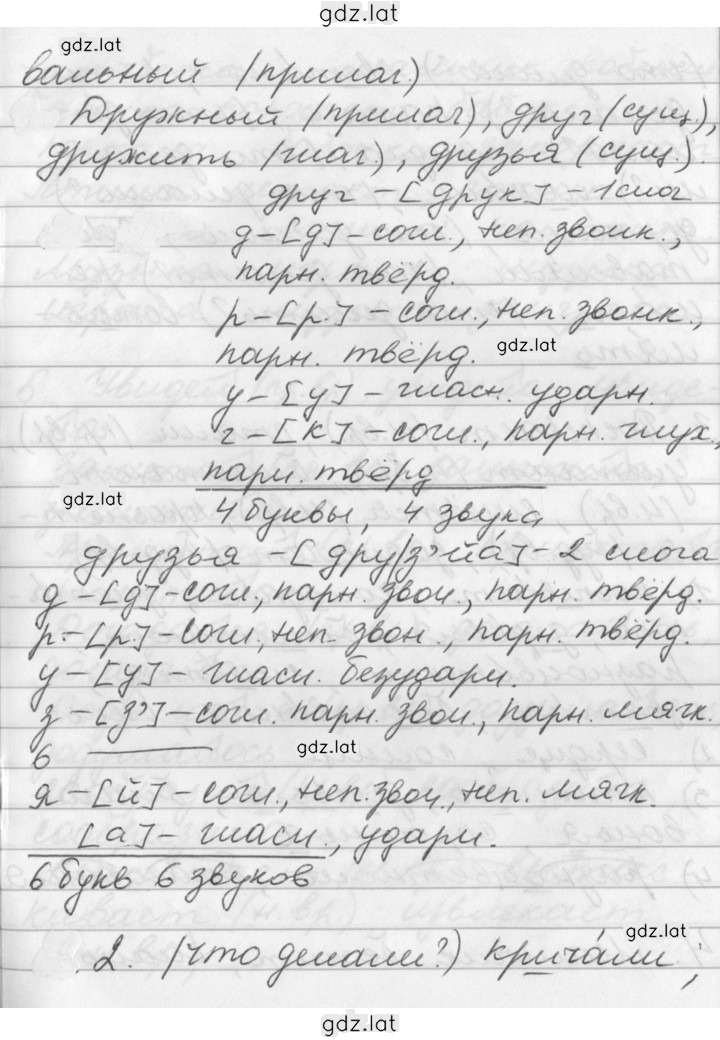 gdz.lat
gdz.lat
вальный (прилаг.)
Дружный (прилаг), друг (сущ.),
дружить (глаг.), друзья (сущ.).
друг - [друк] - 1 слог
д - [д] - согл., неп. звонк.,
парн. твёрд.
р - [р] - согл., неп. звонк.,
парн. твёрд. gdz.lat
у - [у] - гласн. ударн.
г - [к] - согл., парн. глух.,
парн. твёрд
gdz.lat
4 буквы, 4 звука
друзья - [дру|з'йа́] - 2 слога
д - [д] - согл., парн. звон., парн. твёрд.
р - [р] - согл., неп. звон., парн. твёрд.
у - [у] - гласн. безударн.
з - [з'] - согл. парн. звон., парн. мягк.
ь —— gdz.lat
я - [й] - согл., неп. звон., неп. мягк.
[а] - гласн., ударн.
6 букв 6 звуков
gdz.lat
2. (что делали?) крича́ли,
gdz.lat